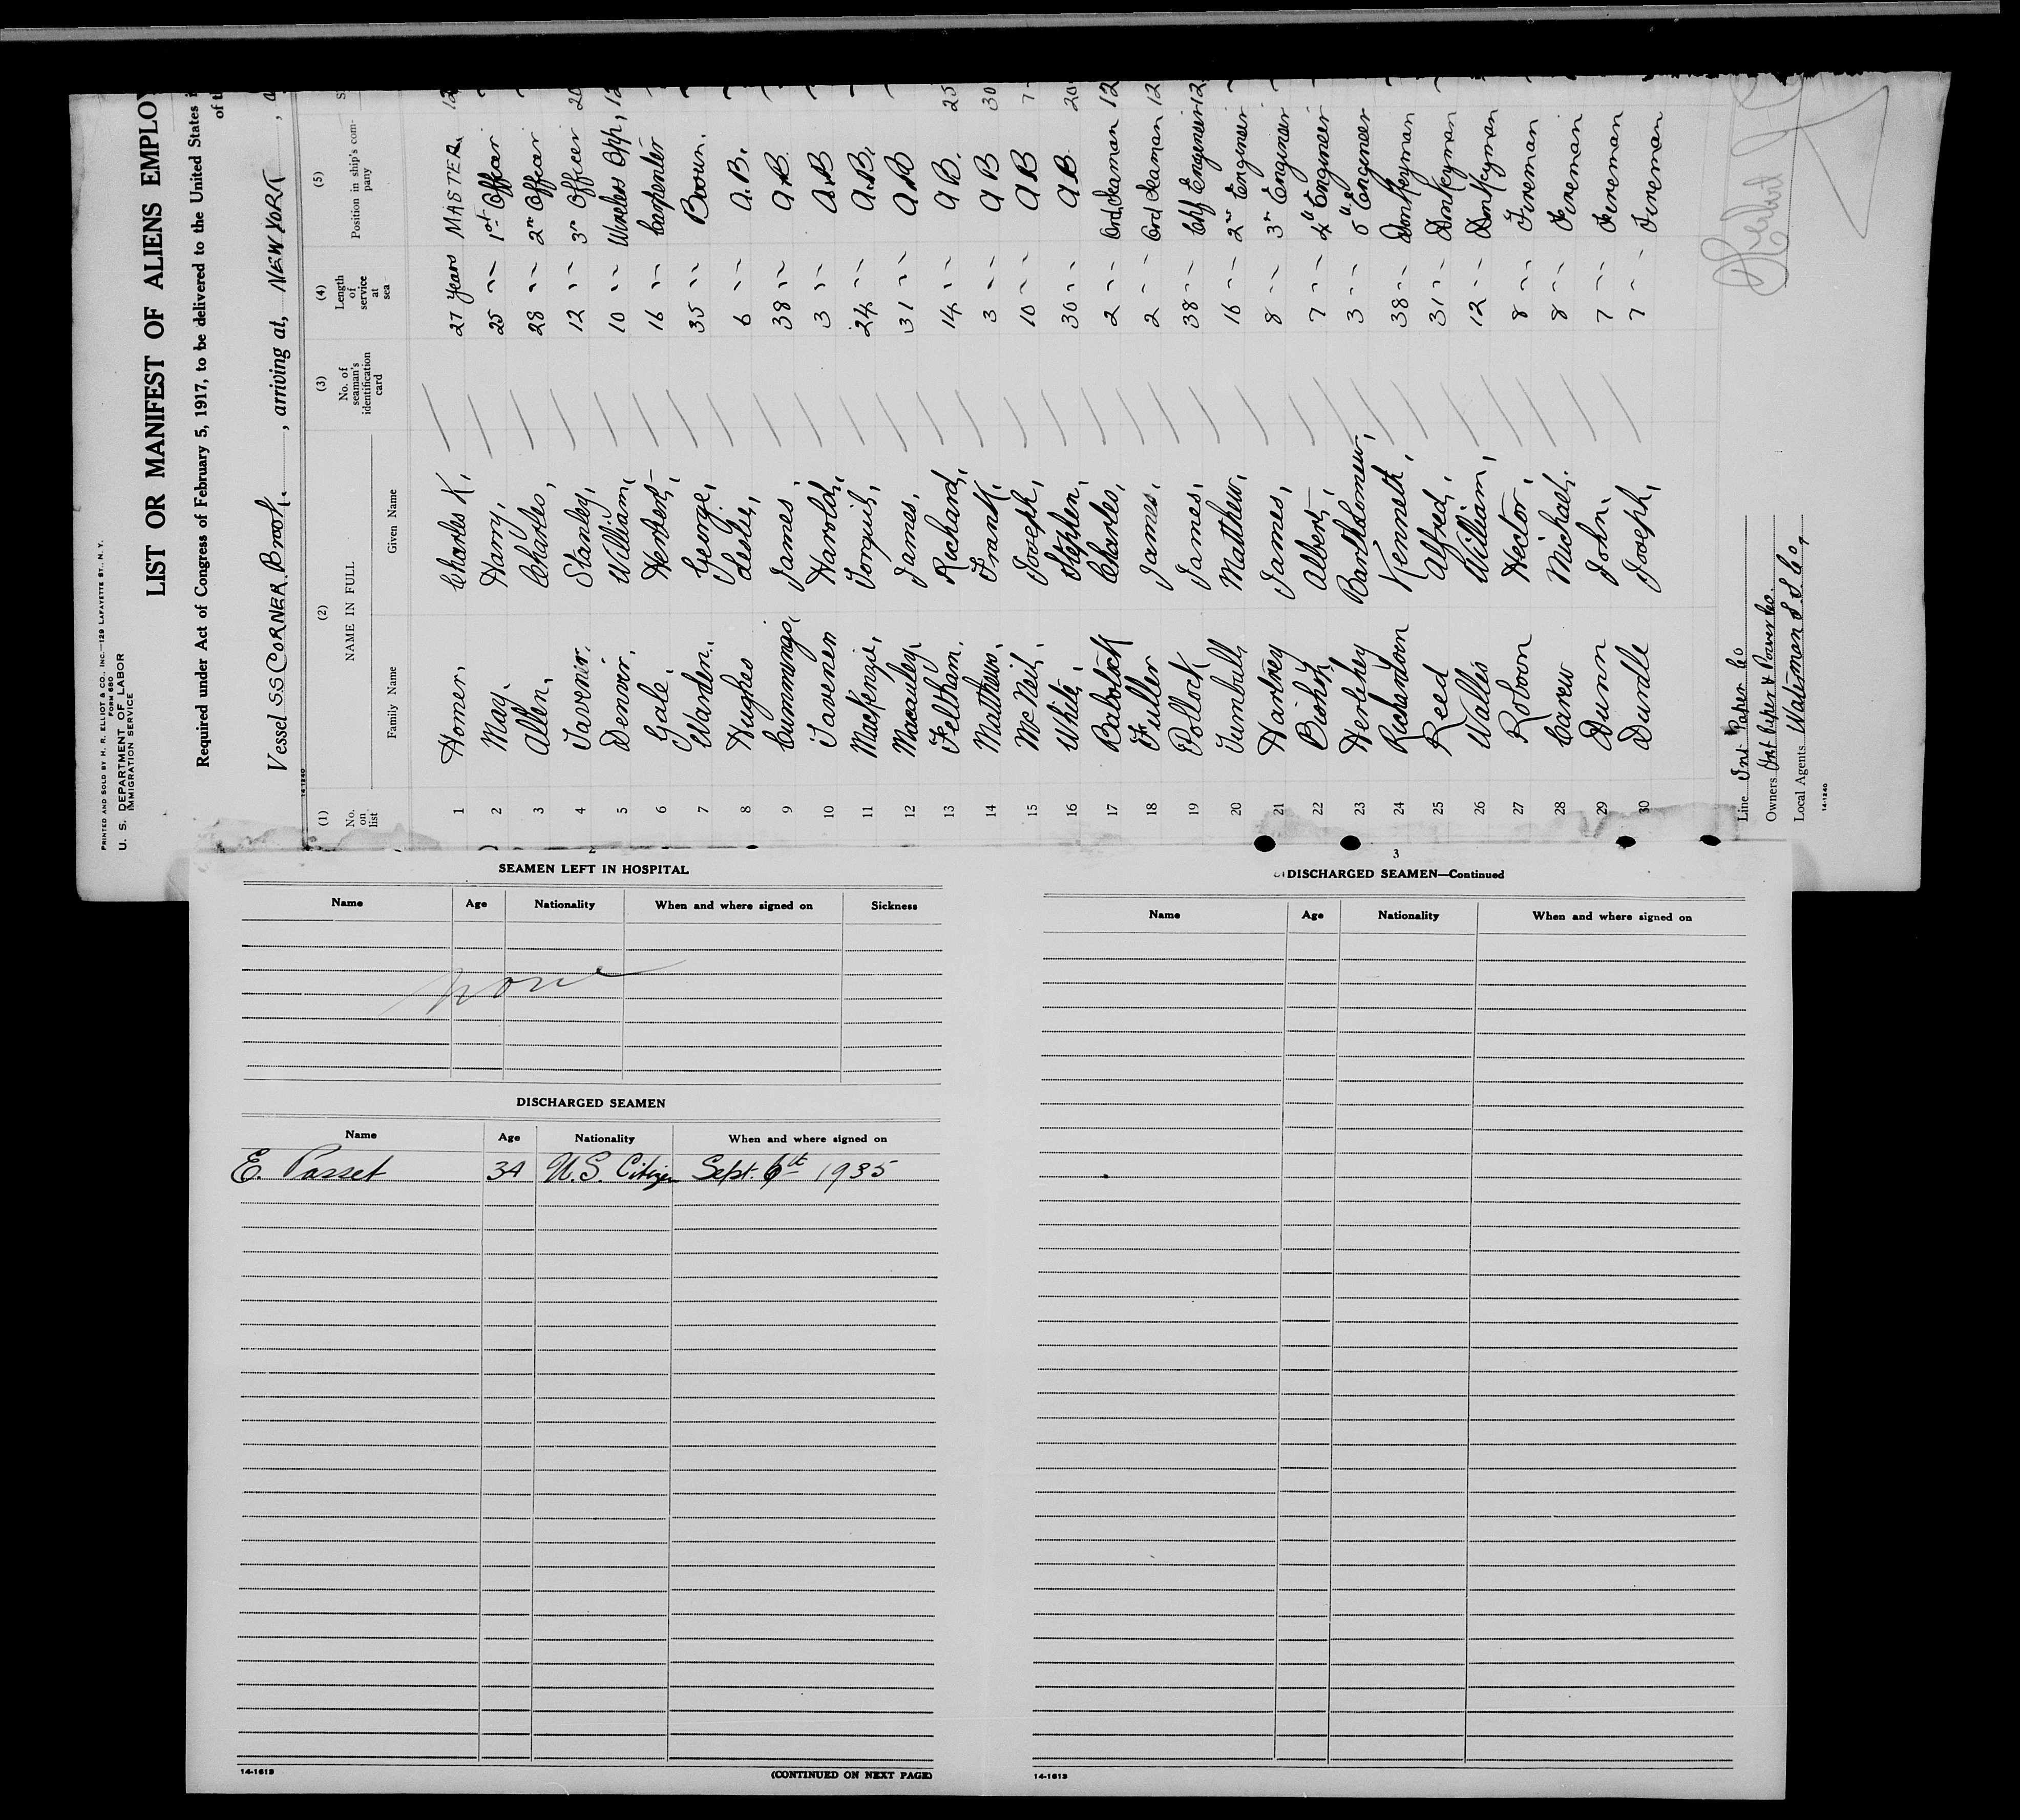 PRINTED AND SOLD BY H. R. ELLIOT & CO., INC.—129 LAFAYETTE ST., N. Y.
FORM 680
U. S. DEPARTMENT OF LABOR
IMMIGRATION SERVICE
LIST OR MANIFEST OF ALIENS EMPLOY
Required under Act of Congress of February 5, 1917, to be delivered to the United States
of th
Vessel SS CORNER Brook., arriving at, NEW YORK,
14-1240
(1) (2) (3) (4) (5)
No. on list NAME IN FULL No. of seaman's identification card Length of service at sea Position in ship's company
Family Name Given Name
1 Homer, Charles K, 27 Years MASTER 12
2 May, Harry, 25 〃 1st Officer
3 Allen, Charles, 28 〃 2nd Officer
4 Tavenir, Stanley, 12 〃 3rd Officer 20
5 Denvir, William, 10 〃 Wireless Opp, 12
6 Gale, Herbert, 16 〃 Carpenter
7 Warden, George, 35 〃 Bosun.
8 Hughes Leslie, 6 〃 A.B.
9 Cummings, James, 38 〃 A.B.
10 Tavenen Harold, 3 〃 A.B
11 MacKenzie, Torquil, 24 〃 A.B.
12 Macauley, James, 31 〃 A.B
13 Feltham. Richard, 14 〃 AB. 25
14 Matthews, Frank, 3 〃 AB 30
15 McNeil, Joseph, 10 〃 AB 7
16 White, Stephen, 30 〃 AB 20
17 Babstock Charles, 2 〃 Ord Seaman 12
18 Fuller James, 2 〃 Ord Seaman 12
19 Pollock James, 38 〃 Chf Engineer 12
20 Turnbull, Matthew, 16 〃 2nd Engineer
21 Hartney James, 8 〃 3rd Engineer
22 Bishop, Albert, 7 〃 4th Engineer
23 Herlehey Bartholomew, 3 〃 5th Engineer
24 Richardson Kenneth, 38 〃 Donkeyman
25 Reed Alfred, 31 〃 Donkeyman
26 Walles William, 12 〃 Donkeyman
27 Robson Hector, 8 〃 Fireman
28 Carew Michael. 8 〃 Fireman
29 Dunn John. 7 〃 Fireman
30 Durdle Joseph, 7 〃 Fireman
Line Int Paper Co
Owners Int Paper & Power Co.
Local Agents Waterman S.S. Co,
14-1240
Herbert
SEAMEN LEFT IN HOSPITAL
Name Age Nationality When and where signed on Sickness
none
DISCHARGED SEAMEN
Name Age Nationality When and where signed on
E. Passet 34 U.S. Citizen Sept. 6th 1935
14-1613
(CONTINUED ON NEXT PAGE)
3
DISCHARGED SEAMEN—Continued
Name Age Nationality When and where signed on
14-1613